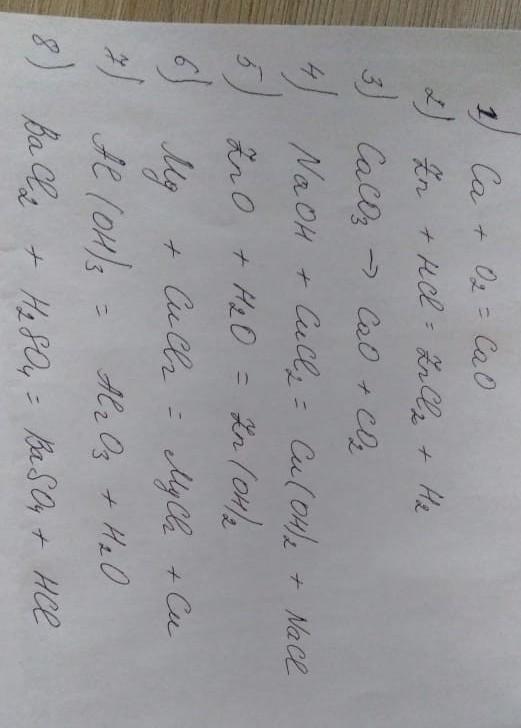 1) Ca + O2 = CaO
2) Zn + HCl = ZnCl2 + H2
3) CaCO3 → CaO + CO2
4) NaOH + CuCl2 = Cu(OH)2 + NaCl
5) ZnO + H2O = Zn(OH)2
6) Mg + CuCl2 = MgCl2 + Cu
7) Al(OH)3 = Al2O3 + H2O
8) BaCl2 + H2SO4 = BaSO4 + HCl